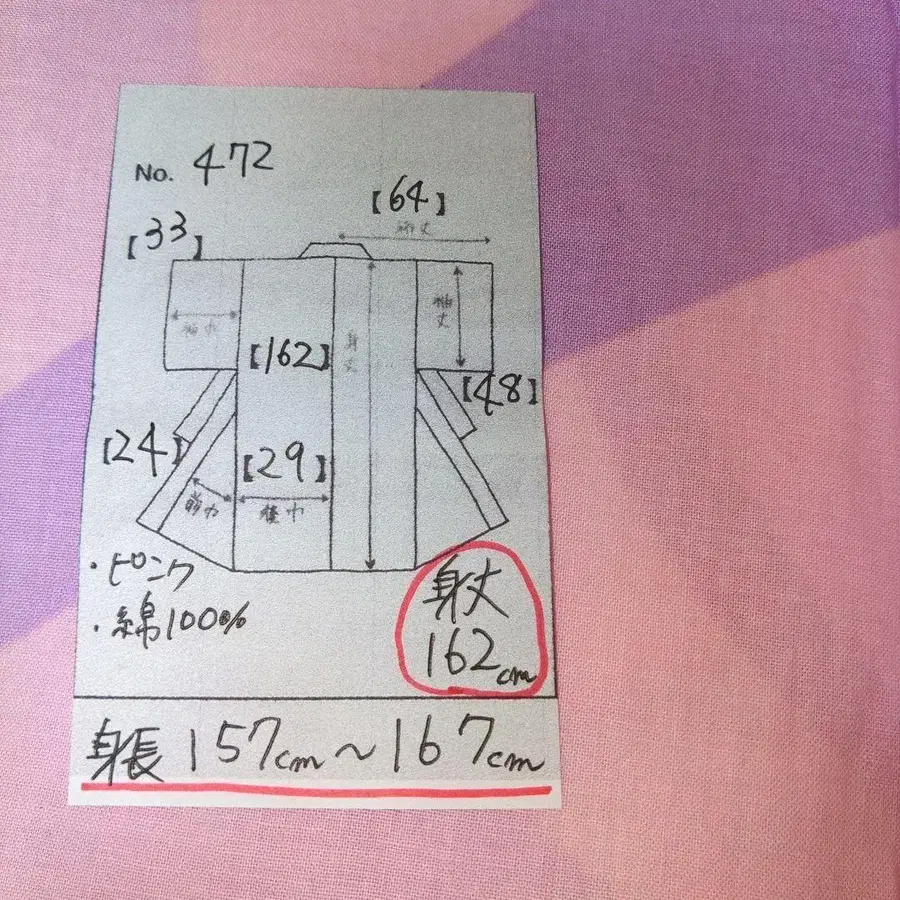 No. 472
【64】
裄丈
【33】
袖巾
袖丈
身丈
【162】
【48】
【24】
【29】
前巾
後巾
・ピンク
・綿100%
身丈
162cm
身長157cm~167cm